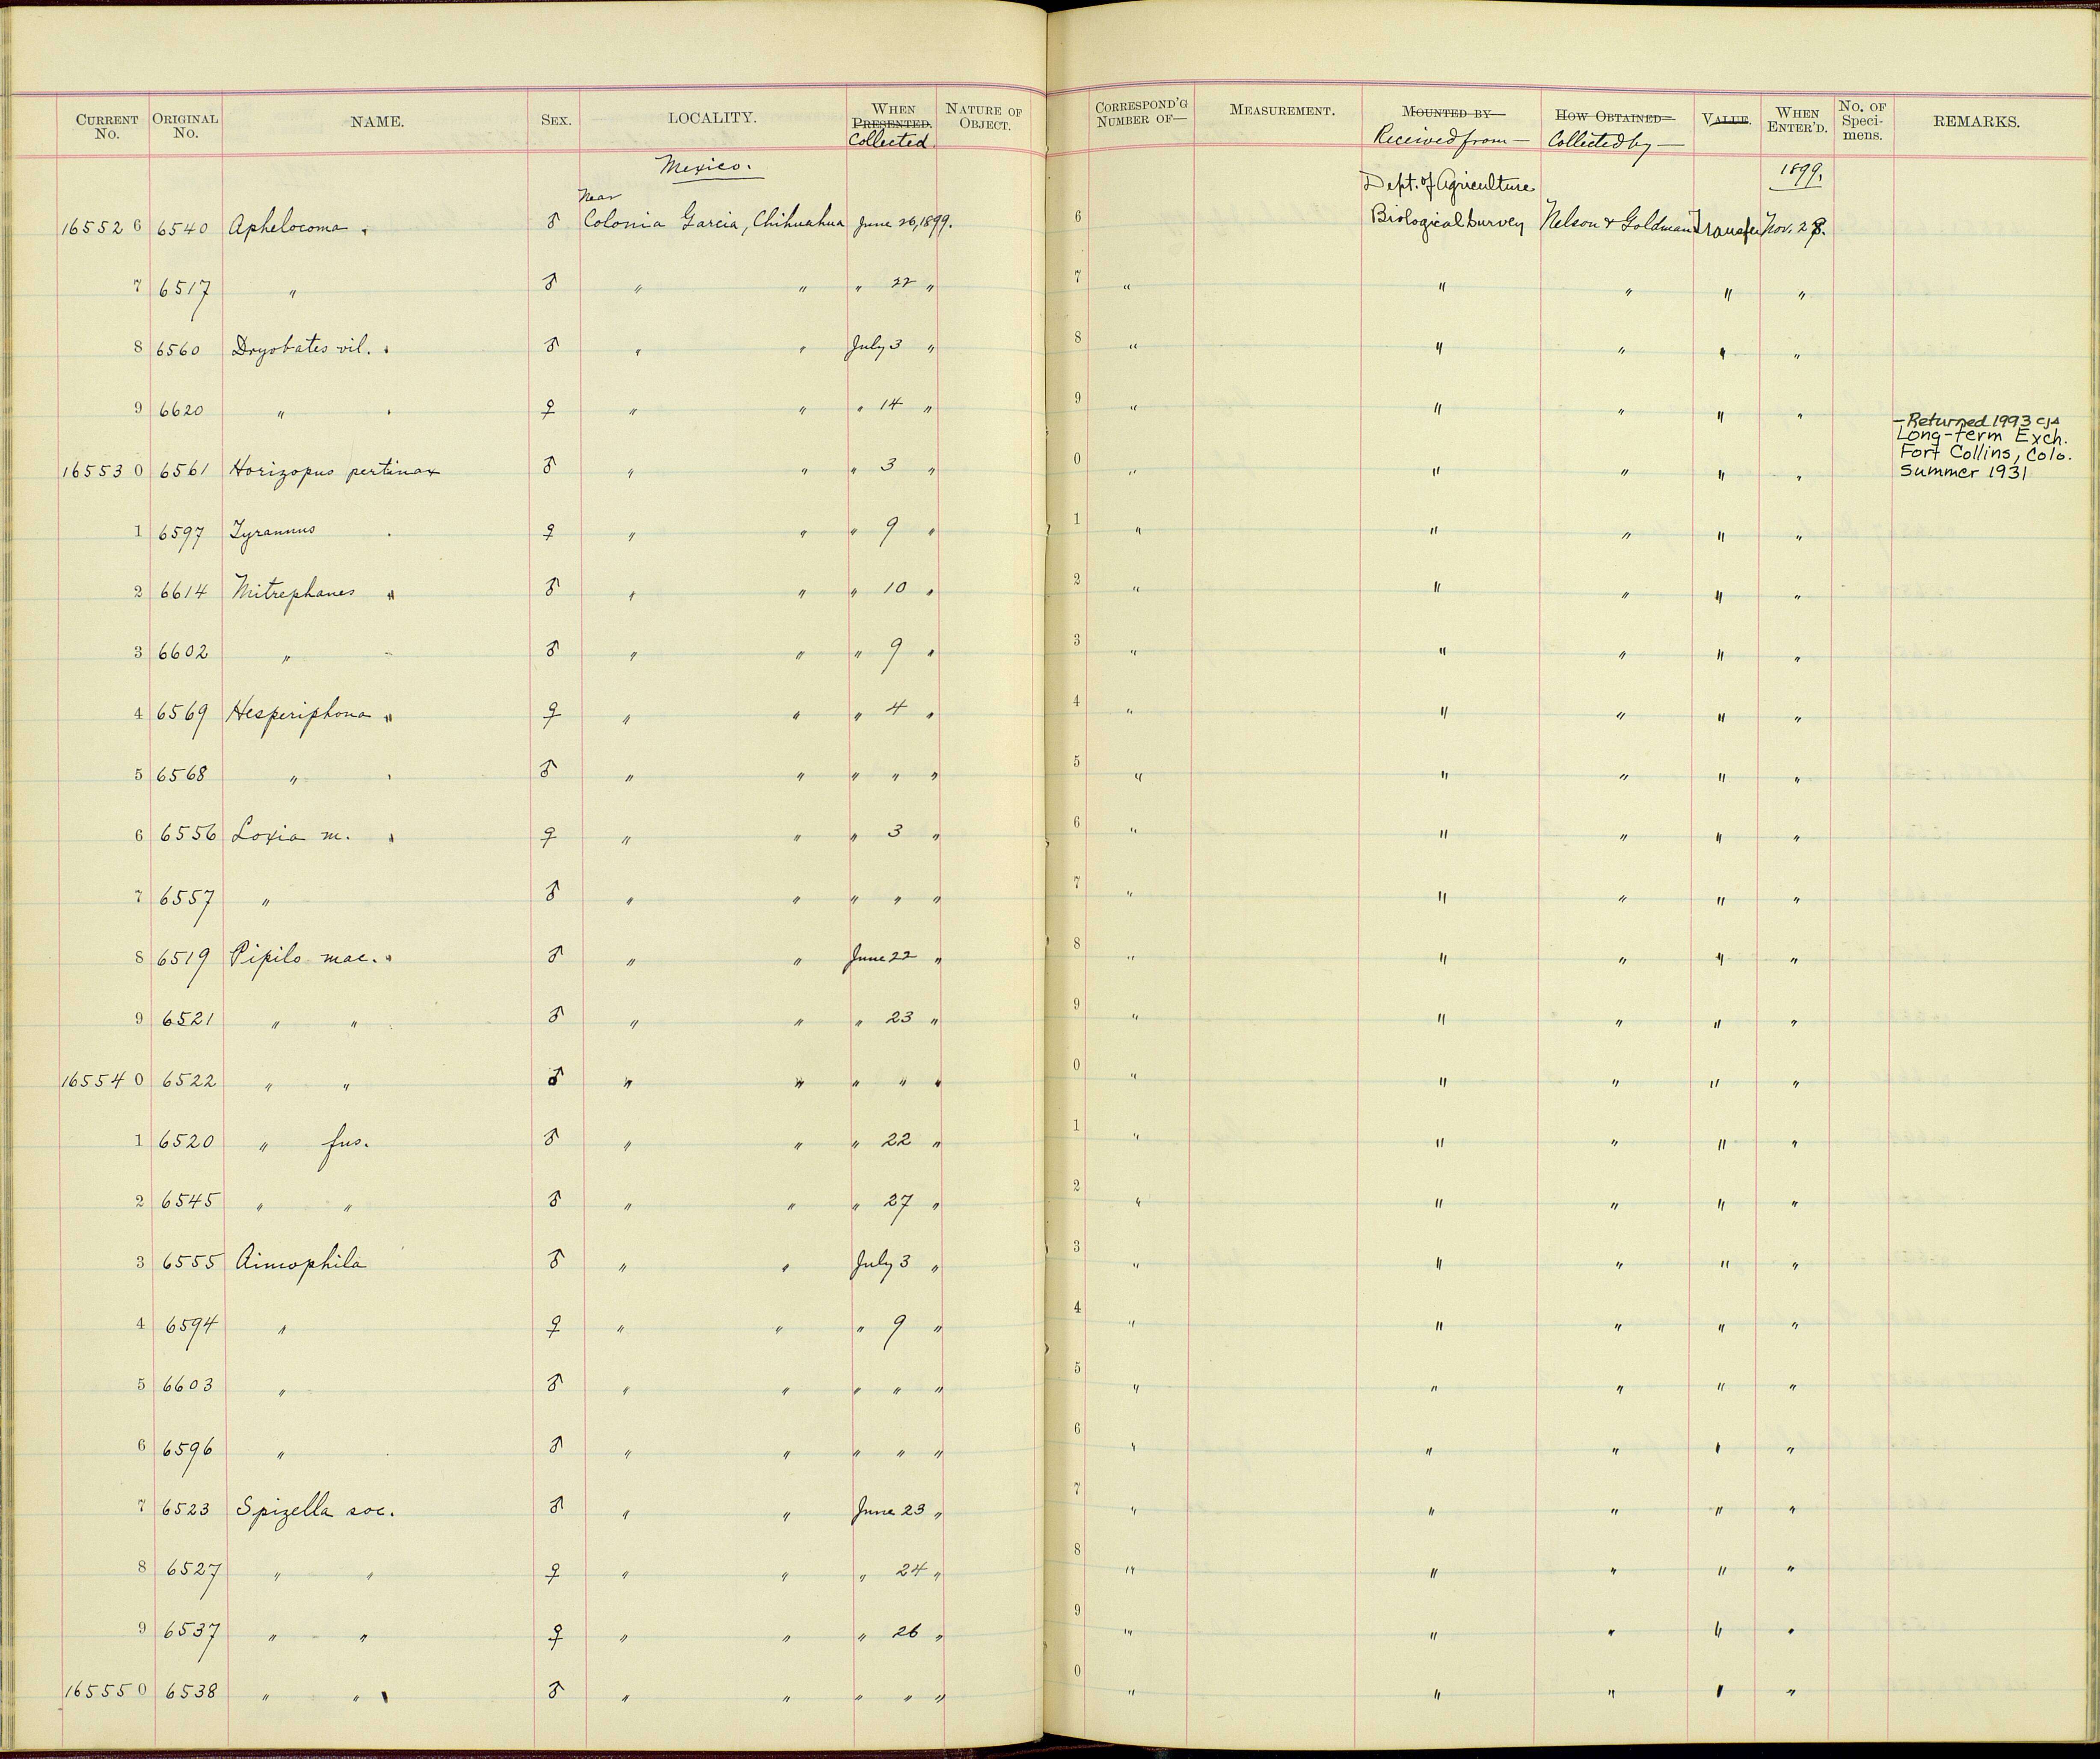 CURRENT No. ORIGINAL No. NAME. SEX. LOCALITY. WHEN PRESENTED. Collected. NATURE OF OBJECT. CORRESPOND'G NUMBER OF— MEASUREMENT. MOUNTED BY— Received from— HOW OBTAINED— Collected by— VALUE. WHEN ENTER'D. No. OF Speci-mens. REMARKS.
Mexico. Dept. of Agriculture 1899.
16552 6 6540 Aphelocoma " ♂ Near Colonia Garcia, Chihuahua June 26, 1899. 6 Biological Survey Nelson & Goldman Transfer Nov. 28.
7 6517 " ♂ " " " 22 " 7 " " " " "
8 6560 Dryobates vil. " ♂ " " July 3 " 8 " " " " "
9 6620 " " ♀ " " " 14 " 9 " " " " "
16553 0 6561 Horizopus pertinax ♂ " " " 3 " 0 " " " " " –Returned 1993 CJA
Long-term Exch.
Fort Collins, Colo.
Summer 1931
1 6597 Tyrannus " ♀ " " " 9 " 1 " " " " "
2 6614 Mitrephanes " ♂ " " " 10 " 2 " " " " "
3 6602 " " ♂ " " " 9 " 3 " " " " "
4 6569 Hesperiphona " ♀ " " " 4 " 4 " " " " "
5 6568 " " ♂ " " " " " 5 " " " " "
6 6556 Loxia m. " ♀ " " " 3 " 6 " " " " "
7 6557 " ♂ " " " " " 7 " " " " "
8 6519 Pipilo mac. " ♂ " " June 22 " 8 " " " " "
9 6521 " " ♂ " " " 23 " 9 " " " " "
16554 0 6522 " " ♂ " " " " " 0 " " " " "
1 6520 " fus. ♂ " " " 22 " 1 " " " " "
2 6545 " " ♂ " " " 27 " 2 " " " " "
3 6555 Aimophila ♂ " " July 3 " 3 " " " " "
4 6594 " ♀ " " " 9 " 4 " " " " "
5 6603 " ♂ " " " " " 5 " " " " "
6 6596 " ♂ " " " " " 6 " " " " "
7 6523 Spizella soc. ♂ " " June 23 " 7 " " " " "
8 6527 " " ♀ " " " 24 " 8 " " " " "
9 6537 " " ♀ " " " 26 " 9 " " " " "
16555 0 6538 " " ♂ " " " " " 0 " " " " "